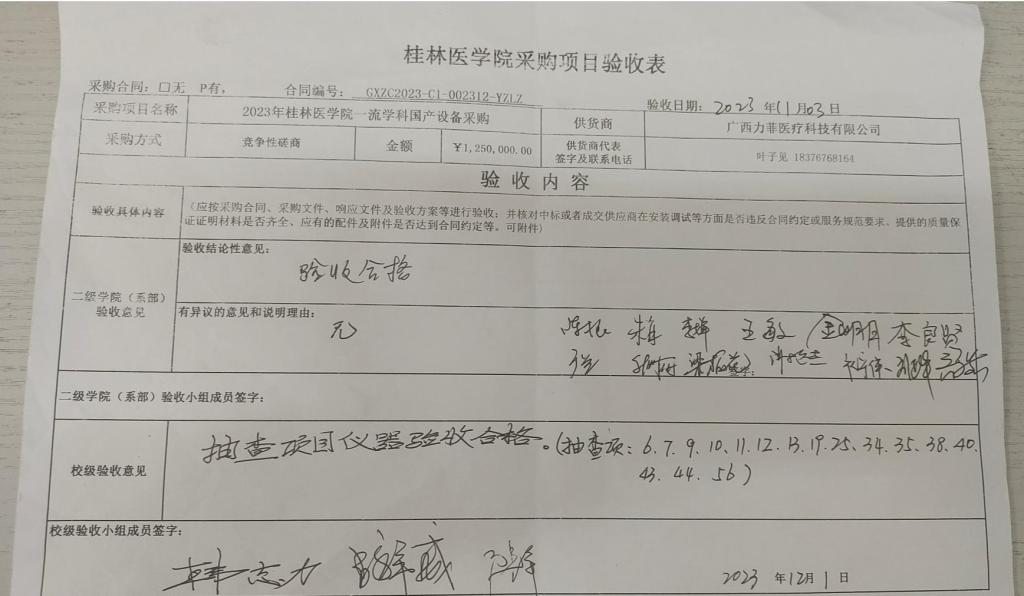 桂林医学院采购项目验收表
采购合同：口无 P有， 合同编号： GXZC2023-C1-002312-YZLZ 验收日期： 2023 年 11 月 03 日
采购项目名称 2023年桂林医学院一流学科国产设备采购 供货商 广西力菲医疗科技有限公司
采购方式 竞争性磋商 金额 ￥1,250,000.00 供货商代表签字及联系电话 叶子见 18376768164
验 收 内 容
验收具体内容 （应按采购合同、采购文件、响应文件及验收方案等进行验收；并核对中标或者成交供应商在安装调试等方面是否违反合同约定或服务规范要求、提供的质量保
证证明材料是否齐全、应有的配件及附件是否达到合同约定等。可附件)
二级学院（系部）
验收意见
验收结论性意见：
验收合格
有异议的意见和说明理由：
无
王敏 金明月 李良贤
二级学院（系部）验收小组成员签字：
校级验收意见
抽查项目仪器验收合格。(抽查项：6.7.9.10.11.12.13.19.25、34.35、38.40.
43.44.56)
校级验收小组成员签字：
韩志力
2023 年 12 月 1 日